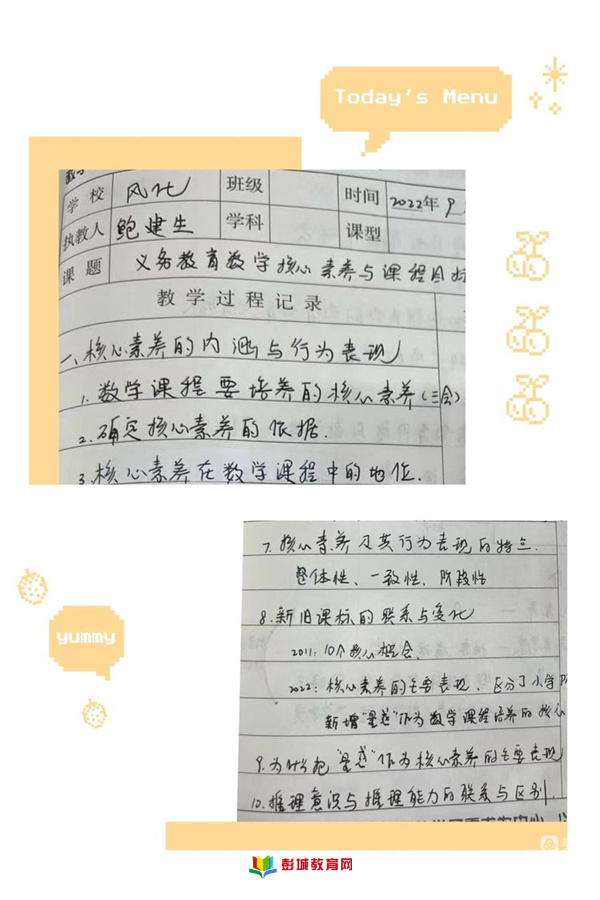 Today's Menu
学 校 风化 班级 时间 2022年 9
执教人 鲍建生 学科 课型
课 题 义务教育数学核心素养与课程目标
教 学 过 程 记 录
一、核心素养的内涵与行为表现
1. 数学课程要培养的核心素养(三会)
2. 确定核心素养的依据.
3. 核心素养在数学课程中的地位.
7. 核心素养及其行为表现的特点.
整体性、一致性、阶段性
8. 新旧课标的联系与变化
2011: 10个核心概念.
2022: 核心素养的主要表现、区分了小学
新增"量感"作为数学课程培养的核心
yummy
9. 为什么把"量感"作为核心素养的主要表现
10. 推理意识与推理能力的联系与区别.
彭城教育网